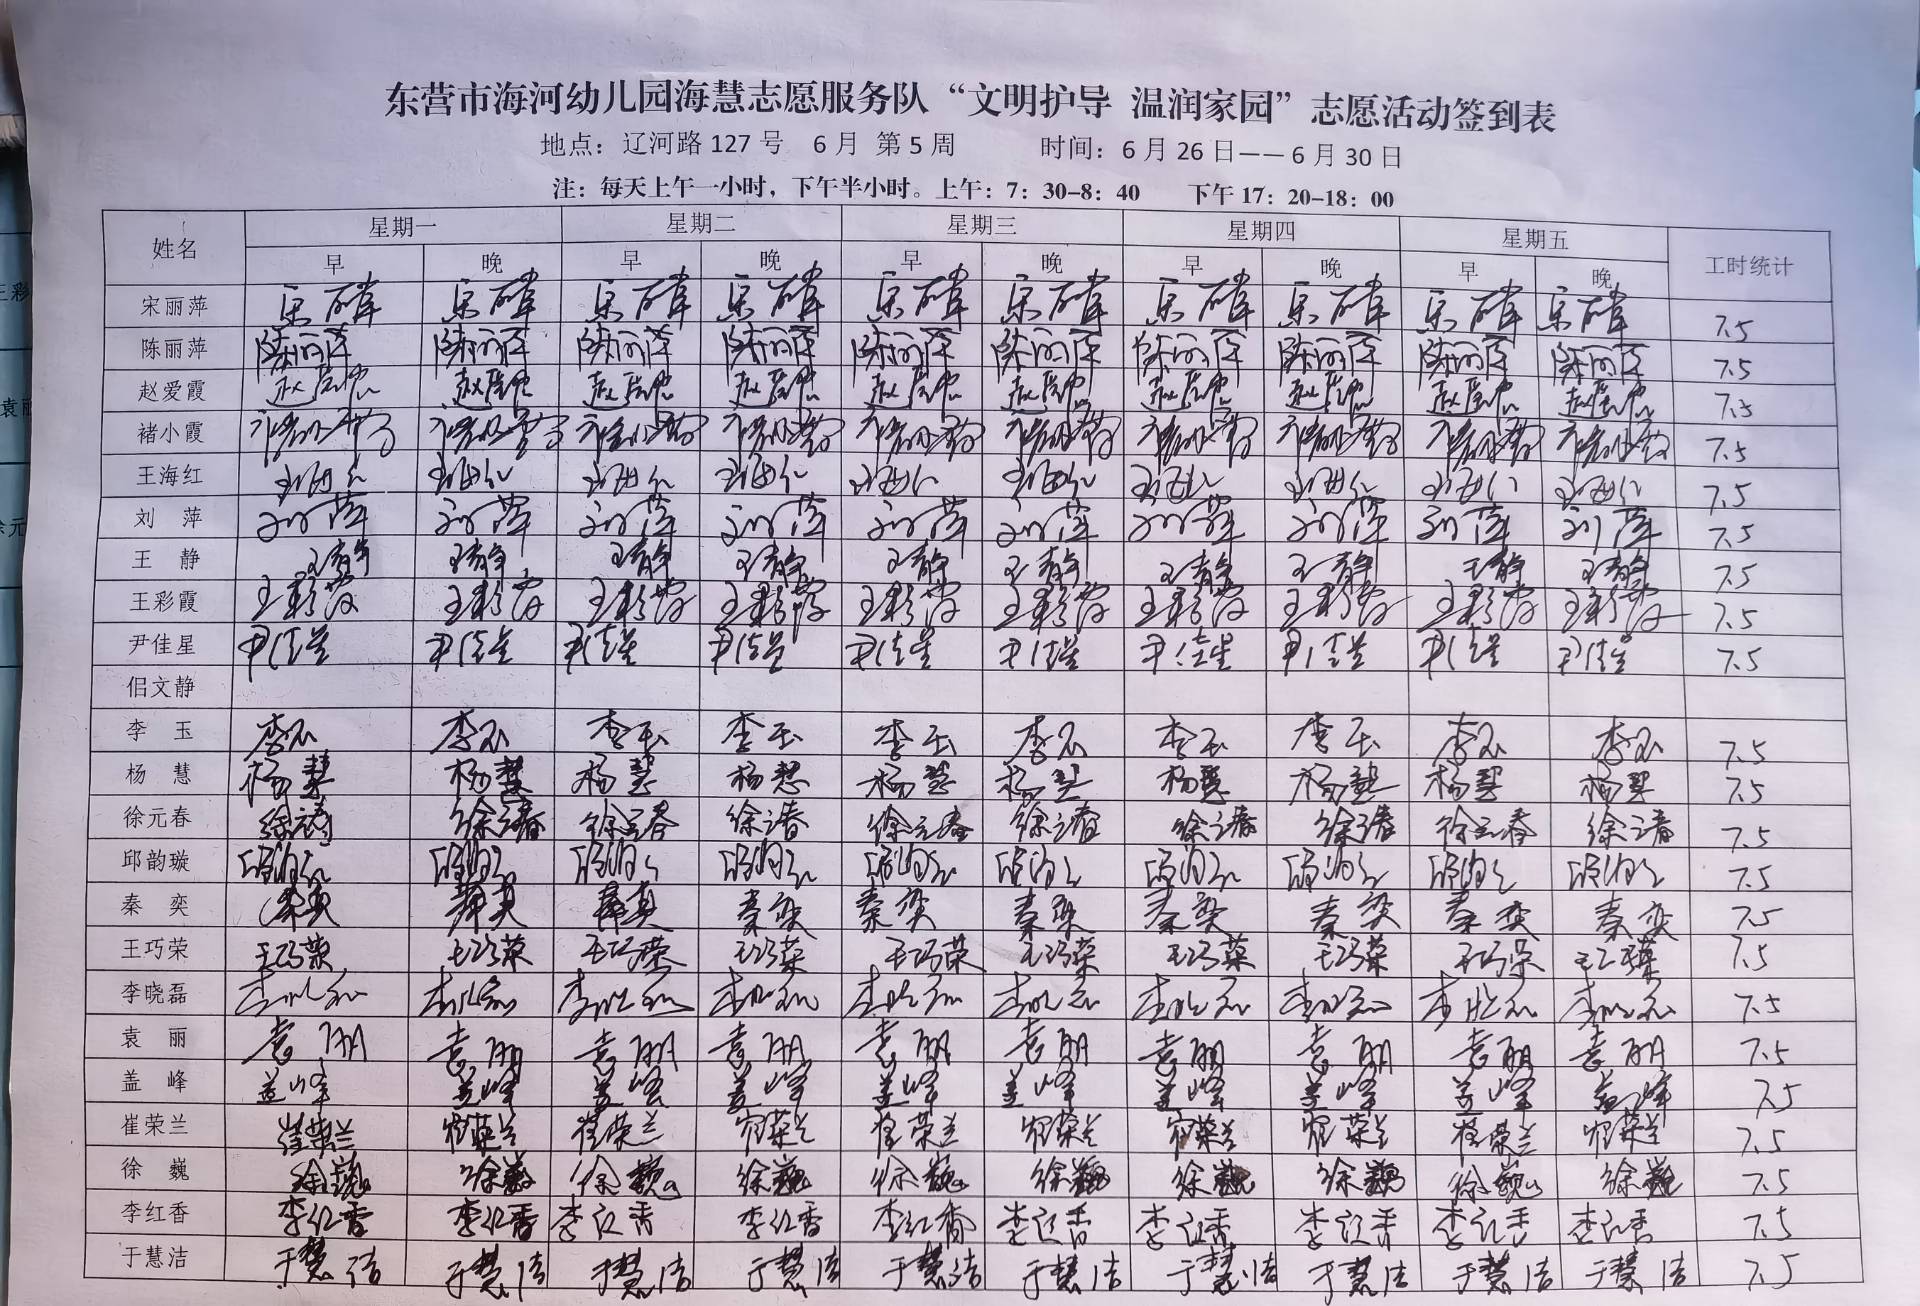 东营市海河幼儿园海慧志愿服务队“文明护导 温润家园”志愿活动签到表
地点：辽河路 127 号 6 月 第 5 周 时间：6 月 26 日——6 月 30 日
注：每天上午一小时，下午半小时。上午：7：30-8：40 下午 17：20-18：00
姓名 星期一 星期二 星期三 星期四 星期五 工时统计
早 晚 早 晚 早 晚 早 晚 早 晚
宋丽萍 7.5
陈丽萍 陈丽萍 陈丽萍 陈丽萍 陈丽萍 陈丽萍 陈丽萍 陈丽萍 陈丽萍 陈丽萍 陈丽萍 7.5
赵爱霞 7.5
褚小霞 褚小霞 褚小霞 褚小霞 褚小霞 褚小霞 褚小霞 褚小霞 褚小霞 褚小霞 褚小霞 7.5
王海红 王海红 王海红 王海红 王海红 王海红 王海红 王海红 王海红 王海红 王海红 7.5
刘 萍 刘萍 刘萍 刘萍 刘萍 刘萍 刘萍 刘萍 刘萍 刘萍 刘萍 7.5
王 静 王静 王静 王静 王静 王静 王静 王静 王静 王静 王静 7.5
王彩霞 王彩霞 王彩霞 王彩霞 王彩霞 王彩霞 王彩霞 王彩霞 王彩霞 王彩霞 王彩霞 7.5
尹佳星 尹佳星 尹佳星 尹佳星 尹佳星 尹佳星 尹佳星 尹佳星 尹佳星 尹佳星 尹佳星 7.5
佀文静
李 玉 李玉 李玉 李玉 李玉 李玉 李玉 李玉 李玉 李玉 李玉 7.5
杨 慧 杨慧 杨慧 杨慧 杨慧 杨慧 杨慧 杨慧 杨慧 杨慧 杨慧 7.5
徐元春 徐元春 徐元春 徐元春 徐元春 徐元春 徐元春 徐元春 徐元春 徐元春 徐元春 7.5
邱韵璇 7.5
秦 奕 秦奕 秦奕 秦奕 秦奕 秦奕 秦奕 秦奕 秦奕 秦奕 秦奕 7.5
王巧荣 王巧荣 王巧荣 王巧荣 王巧荣 王巧荣 王巧荣 王巧荣 王巧荣 王巧荣 王巧荣 7.5
李晓磊 李晓磊 李晓磊 李晓磊 李晓磊 李晓磊 李晓磊 李晓磊 李晓磊 李晓磊 李晓磊 7.5
袁 丽 袁丽 袁丽 袁丽 袁丽 袁丽 袁丽 袁丽 袁丽 袁丽 袁丽 7.5
盖 峰 盖峰 盖峰 盖峰 盖峰 盖峰 盖峰 盖峰 盖峰 盖峰 盖峰 7.5
崔荣兰 崔荣兰 崔荣兰 崔荣兰 崔荣兰 崔荣兰 崔荣兰 崔荣兰 崔荣兰 崔荣兰 崔荣兰 7.5
徐 巍 徐巍 徐巍 徐巍 徐巍 徐巍 徐巍 徐巍 徐巍 徐巍 徐巍 7.5
李红香 李红香 李红香 李红香 李红香 李红香 李红香 李红香 李红香 李红香 李红香 7.5
于慧洁 于慧洁 于慧洁 于慧洁 于慧洁 于慧洁 于慧洁 于慧洁 于慧洁 于慧洁 于慧洁 7.5